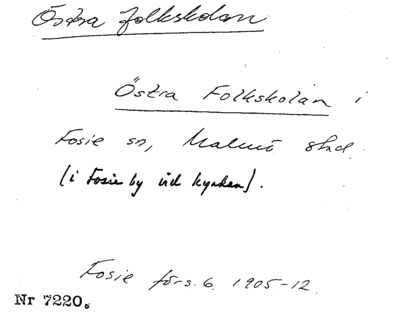 Östra folkskolan
Östra Folkskolan i
Fosie sn, Malmö stad.
(i Fosie by vid kyrkan).
Fosie förs. 6. 1905-12.
Nr 7220.